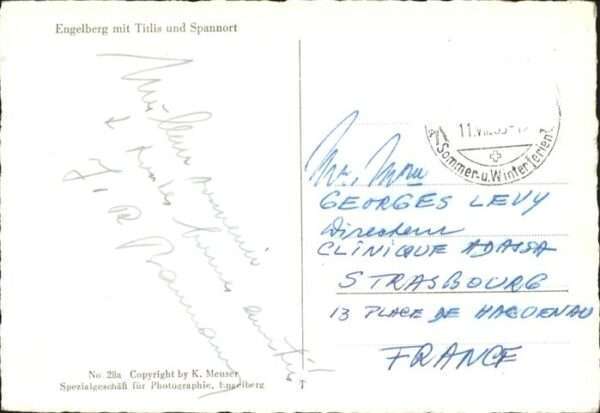 Engelberg mit Titlis und Spannort
Meilleur souvenir
J. R.
No. 28a Copyright by K. Meuser
Spezialgeschäft für Photographie, Engelberg
11.VIII.
Sommer-u.Winterferien
GEORGES LEVY
Directeur
CLINIQUE ADASSA
STRASBOURG
13 PLACE DE HAGUENAU
FRANCE